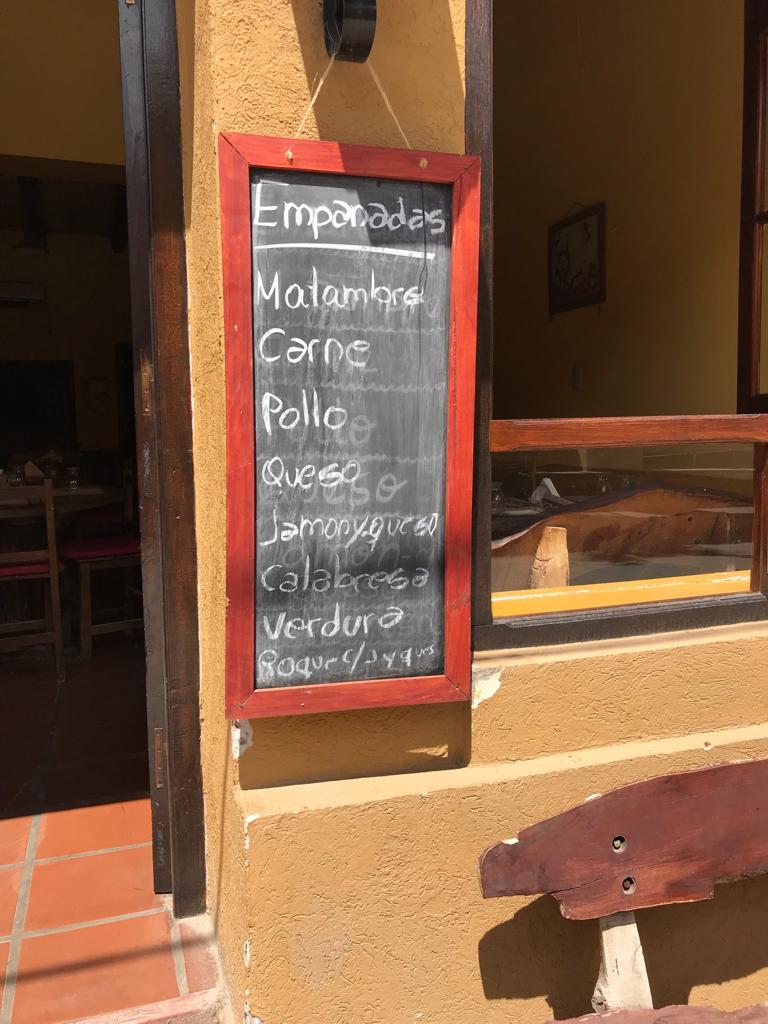 Empanadas
Matambre
Carne
Pollo
Queso
Jamon y queso
Calabresa
Verdura
Roque c/J y ques